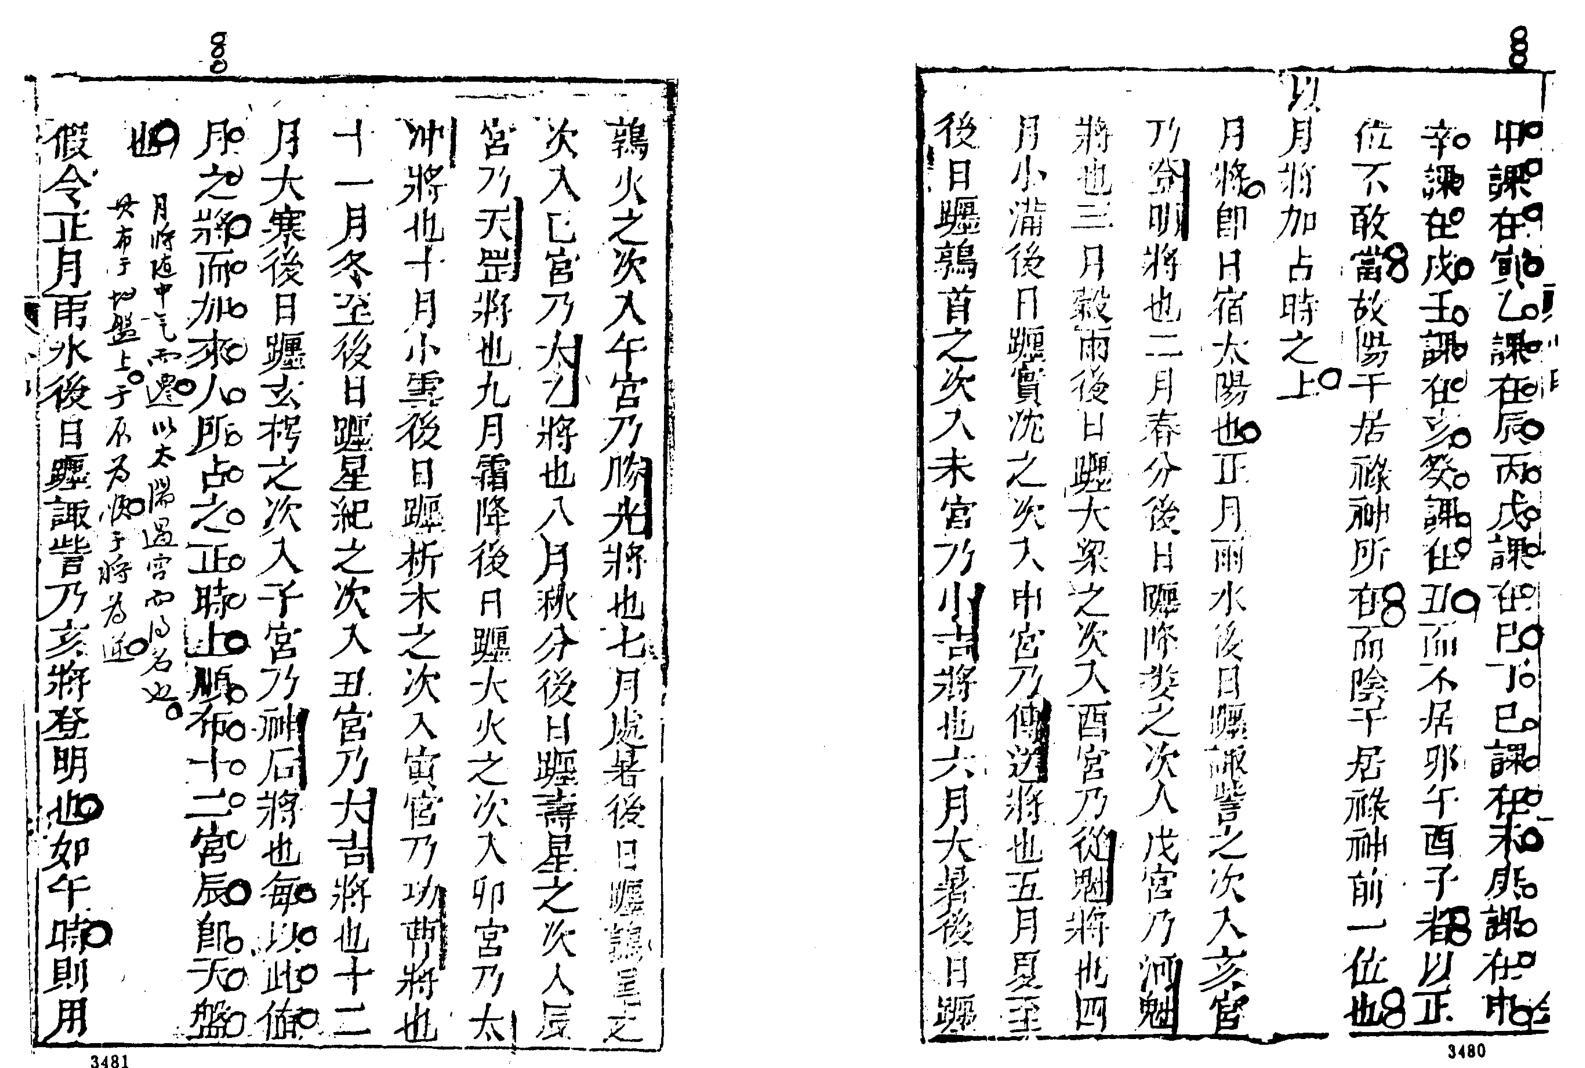 甲課在寅乙課在辰丙戊課在巳丁己課在未庚課在申
辛課在戌壬課在亥癸課在丑而不居卯午酉子者以正
位不敢當故陽干居祿神所在而陰干居祿神前一位也
以月將加占時之上
月將即日宿太陽也正月雨水後日躔諏訾之次入亥宮
乃登明將也二月春分後日躔降婁之次入戌宮乃河魁
將也三月穀雨後日躔大梁之次入酉宮乃從魁將也四
月小滿後日躔實沈之次入申宮乃傳送將也五月夏至
後日躔鶉首之次入未宮乃小吉將也六月大暑後日躔
3480
鶉火之次入午宮乃勝光將也七月處暑後日躔鶉尾之
次入巳宮乃太乙將也八月秋分後日躔壽星之次入辰
宮乃天罡將也九月霜降後日躔大火之次入卯宮乃太
冲將也十月小雪後日躔析木之次入寅宮乃功曹將也
十一月冬至後日躔星紀之次入丑宮乃大吉將也十二
月大寒後日躔玄枵之次入子宮乃神后將也每以此值
月之將而加來人所占之正時上順布十二宮辰即天盤
也
月將隨中气而遷以太陽過宮而得名也
其布于地盤上于辰為順于將為逆
假令正月雨水後日躔諏訾乃亥將登明也如午時則用
3481